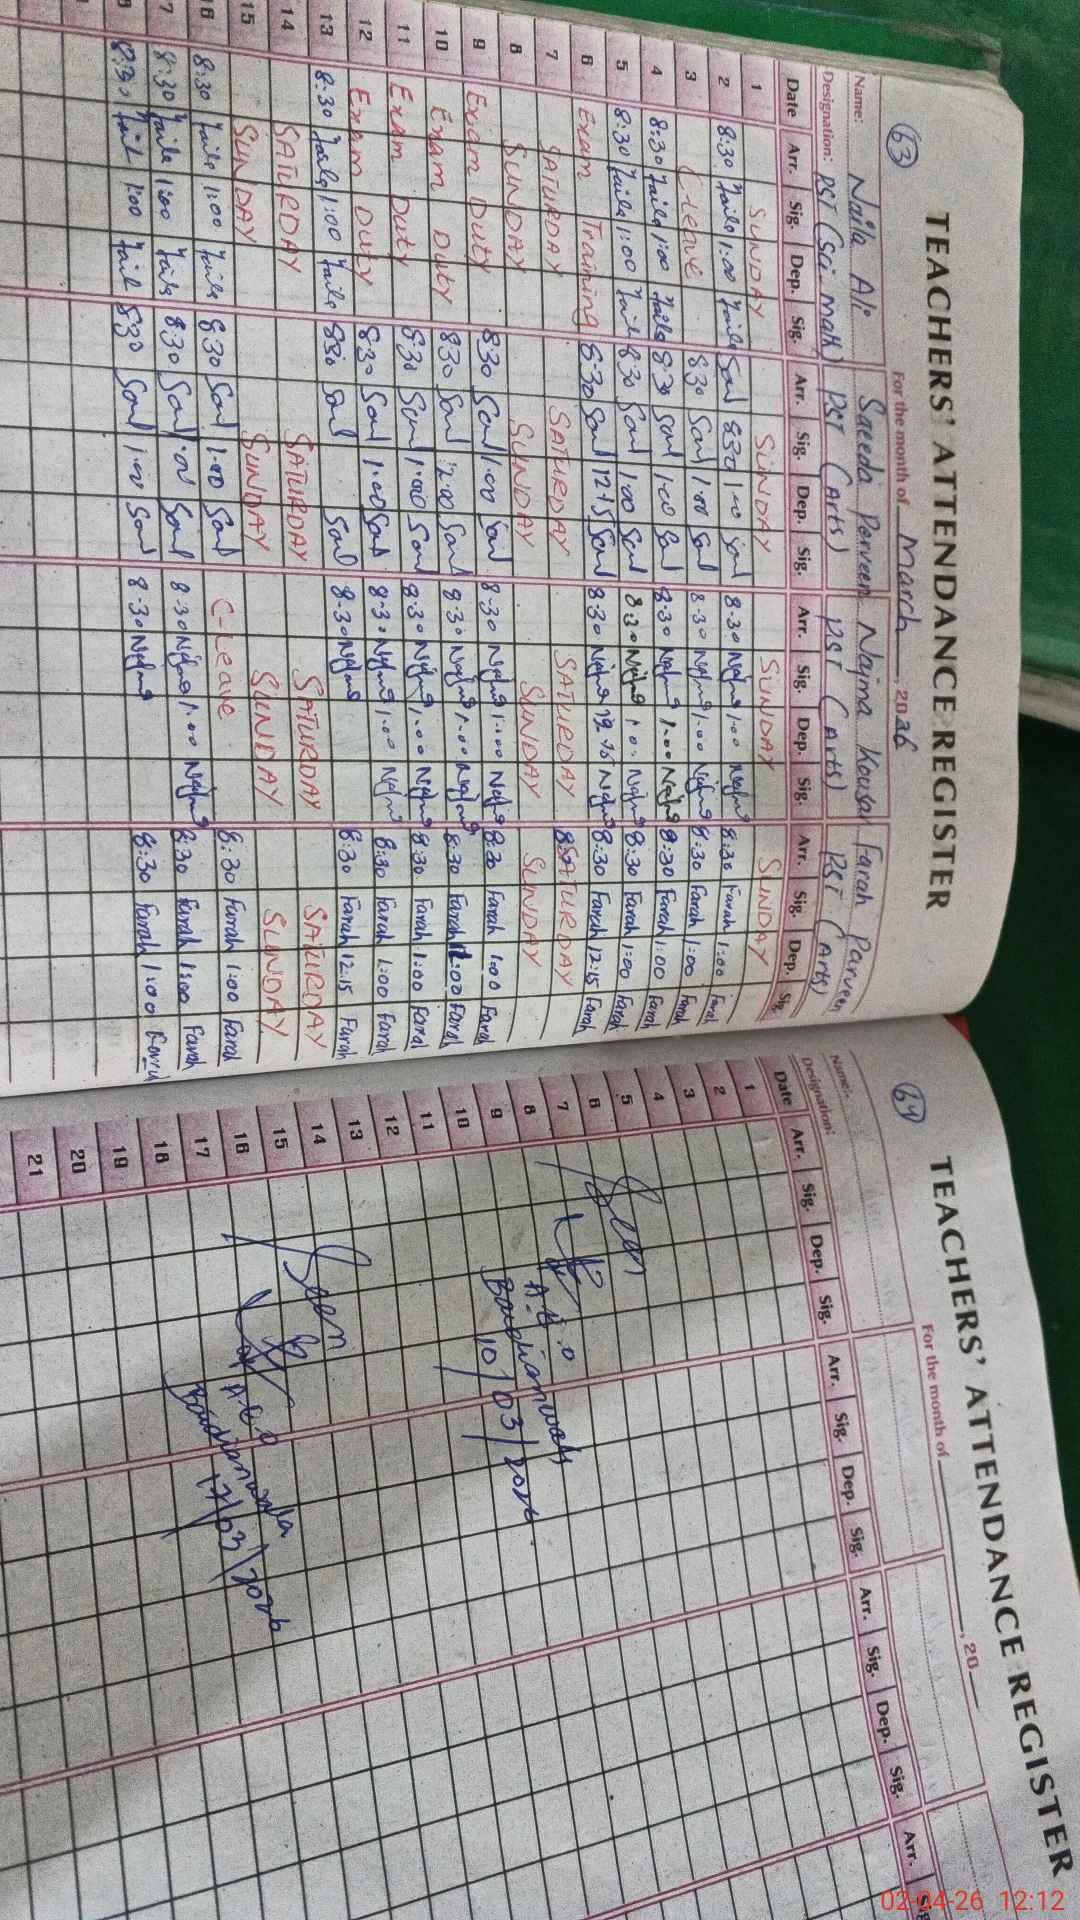 63
TEACHERS' ATTENDANCE REGISTER
For the month of March, 2026
Name: Naila Ali Saeeda Parveen Najma Kousar Farah Parveen
Designation: PST (Sci. math) PST (Arts) PST (Arts) PST (Arts)
Date Arr. Sig. Dep. Sig. Arr. Sig. Dep. Sig. Arr. Sig. Dep. Sig. Arr. Sig. Dep. Sig.
1 SUNDAY SUNDAY SUNDAY SUNDAY
2 8:30 Naila 1:00 Naila 8:30 1:00 8:30 Najma 1:00 Najma 8:30 Farah 1:00 Farah
3 C-leave 8:30 1:00 8:30 Najma 1:00 Najma 8:30 Farah 1:00 Farah
4 8:30 Naila 1:00 Naila 8:30 1:00 8:30 Najma 1:00 Najma 8:30 Farah 1:00 Farah
5 8:30 Naila 1:00 Naila 8:30 1:00 8:30 Najma 1:00 Najma 8:30 Farah 1:00 Farah
6 Exam Training 8:30 12:15 8:30 Najma 12:15 Najma 8:30 Farah 12:15 Farah
7 SATURDAY SATURDAY SATURDAY SATURDAY
8 SUNDAY SUNDAY SUNDAY SUNDAY
9 Exam Duty 8:30 1:00 8:30 Najma 1:00 Najma 8:30 Farah 1:00 Farah
10 Exam Duty 8:30 8:30 Najma 1:00 Najma 8:30 Farah Farah
11 Exam Duty 8:30 1:00 8:30 Najma 1:00 Najma 8:30 Farah 1:00 Farah
12 Exam Duty 8:30 1:00 8:30 Najma 1:00 Najma 8:30 Farah 1:00 Farah
13 8:30 Naila 1:00 Naila 8:30 8:30 Najma 8:30 Farah 12:15 Farah
14 SATURDAY SATURDAY SATURDAY SATURDAY
15 SUNDAY SUNDAY SUNDAY SUNDAY
16 8:30 Naila 1:00 Naila 8:30 1:00 C-Leave 8:30 Farah 1:00 Farah
17 8:30 Naila 1:00 Naila 8:30 1:00 8:30 Najma 1:00 Najma 8:30 Farah 1:00 Farah
8:30 Naila 1:00 Naila 8:30 1:00 8:30 Najma 8:30 Farah 1:00 Farah
64
TEACHERS' ATTENDANCE REGISTER
For the month of , 20
Name:
Designation:
Date Arr. Sig. Dep. Sig. Arr. Sig. Dep. Sig. Arr. Sig. Dep. Sig. Arr.
1
2
3
4
5 Seen
6
7 A.E.O
8
9 10/03/2026
10
11
12
13
14 Seen
15
16 A.E.O
17 17/03/2026
18
19
20
21
02-04-26 12:12